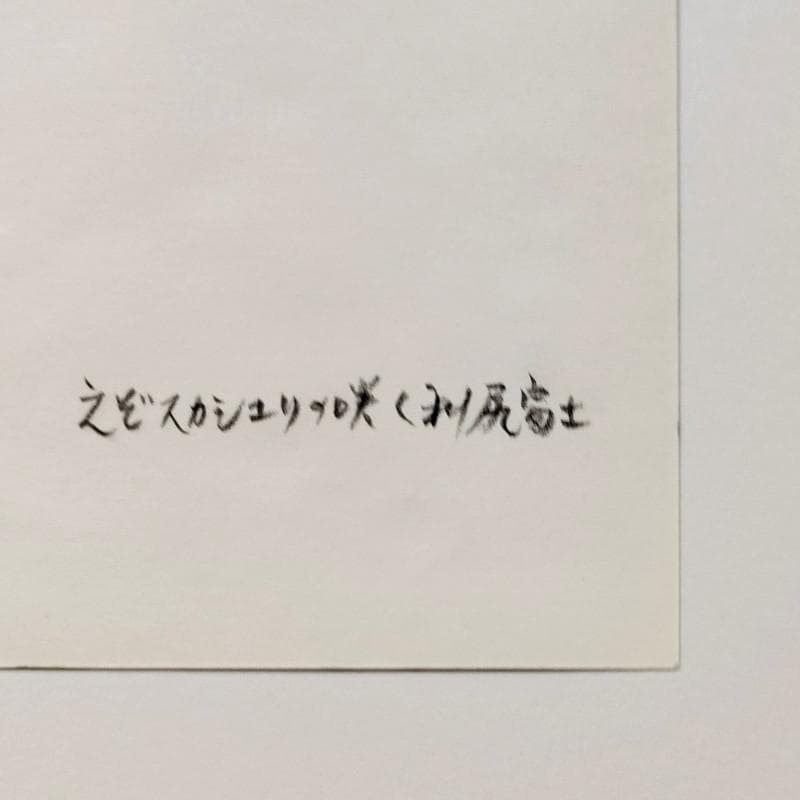 えぞスカシユリの咲く利尻富士